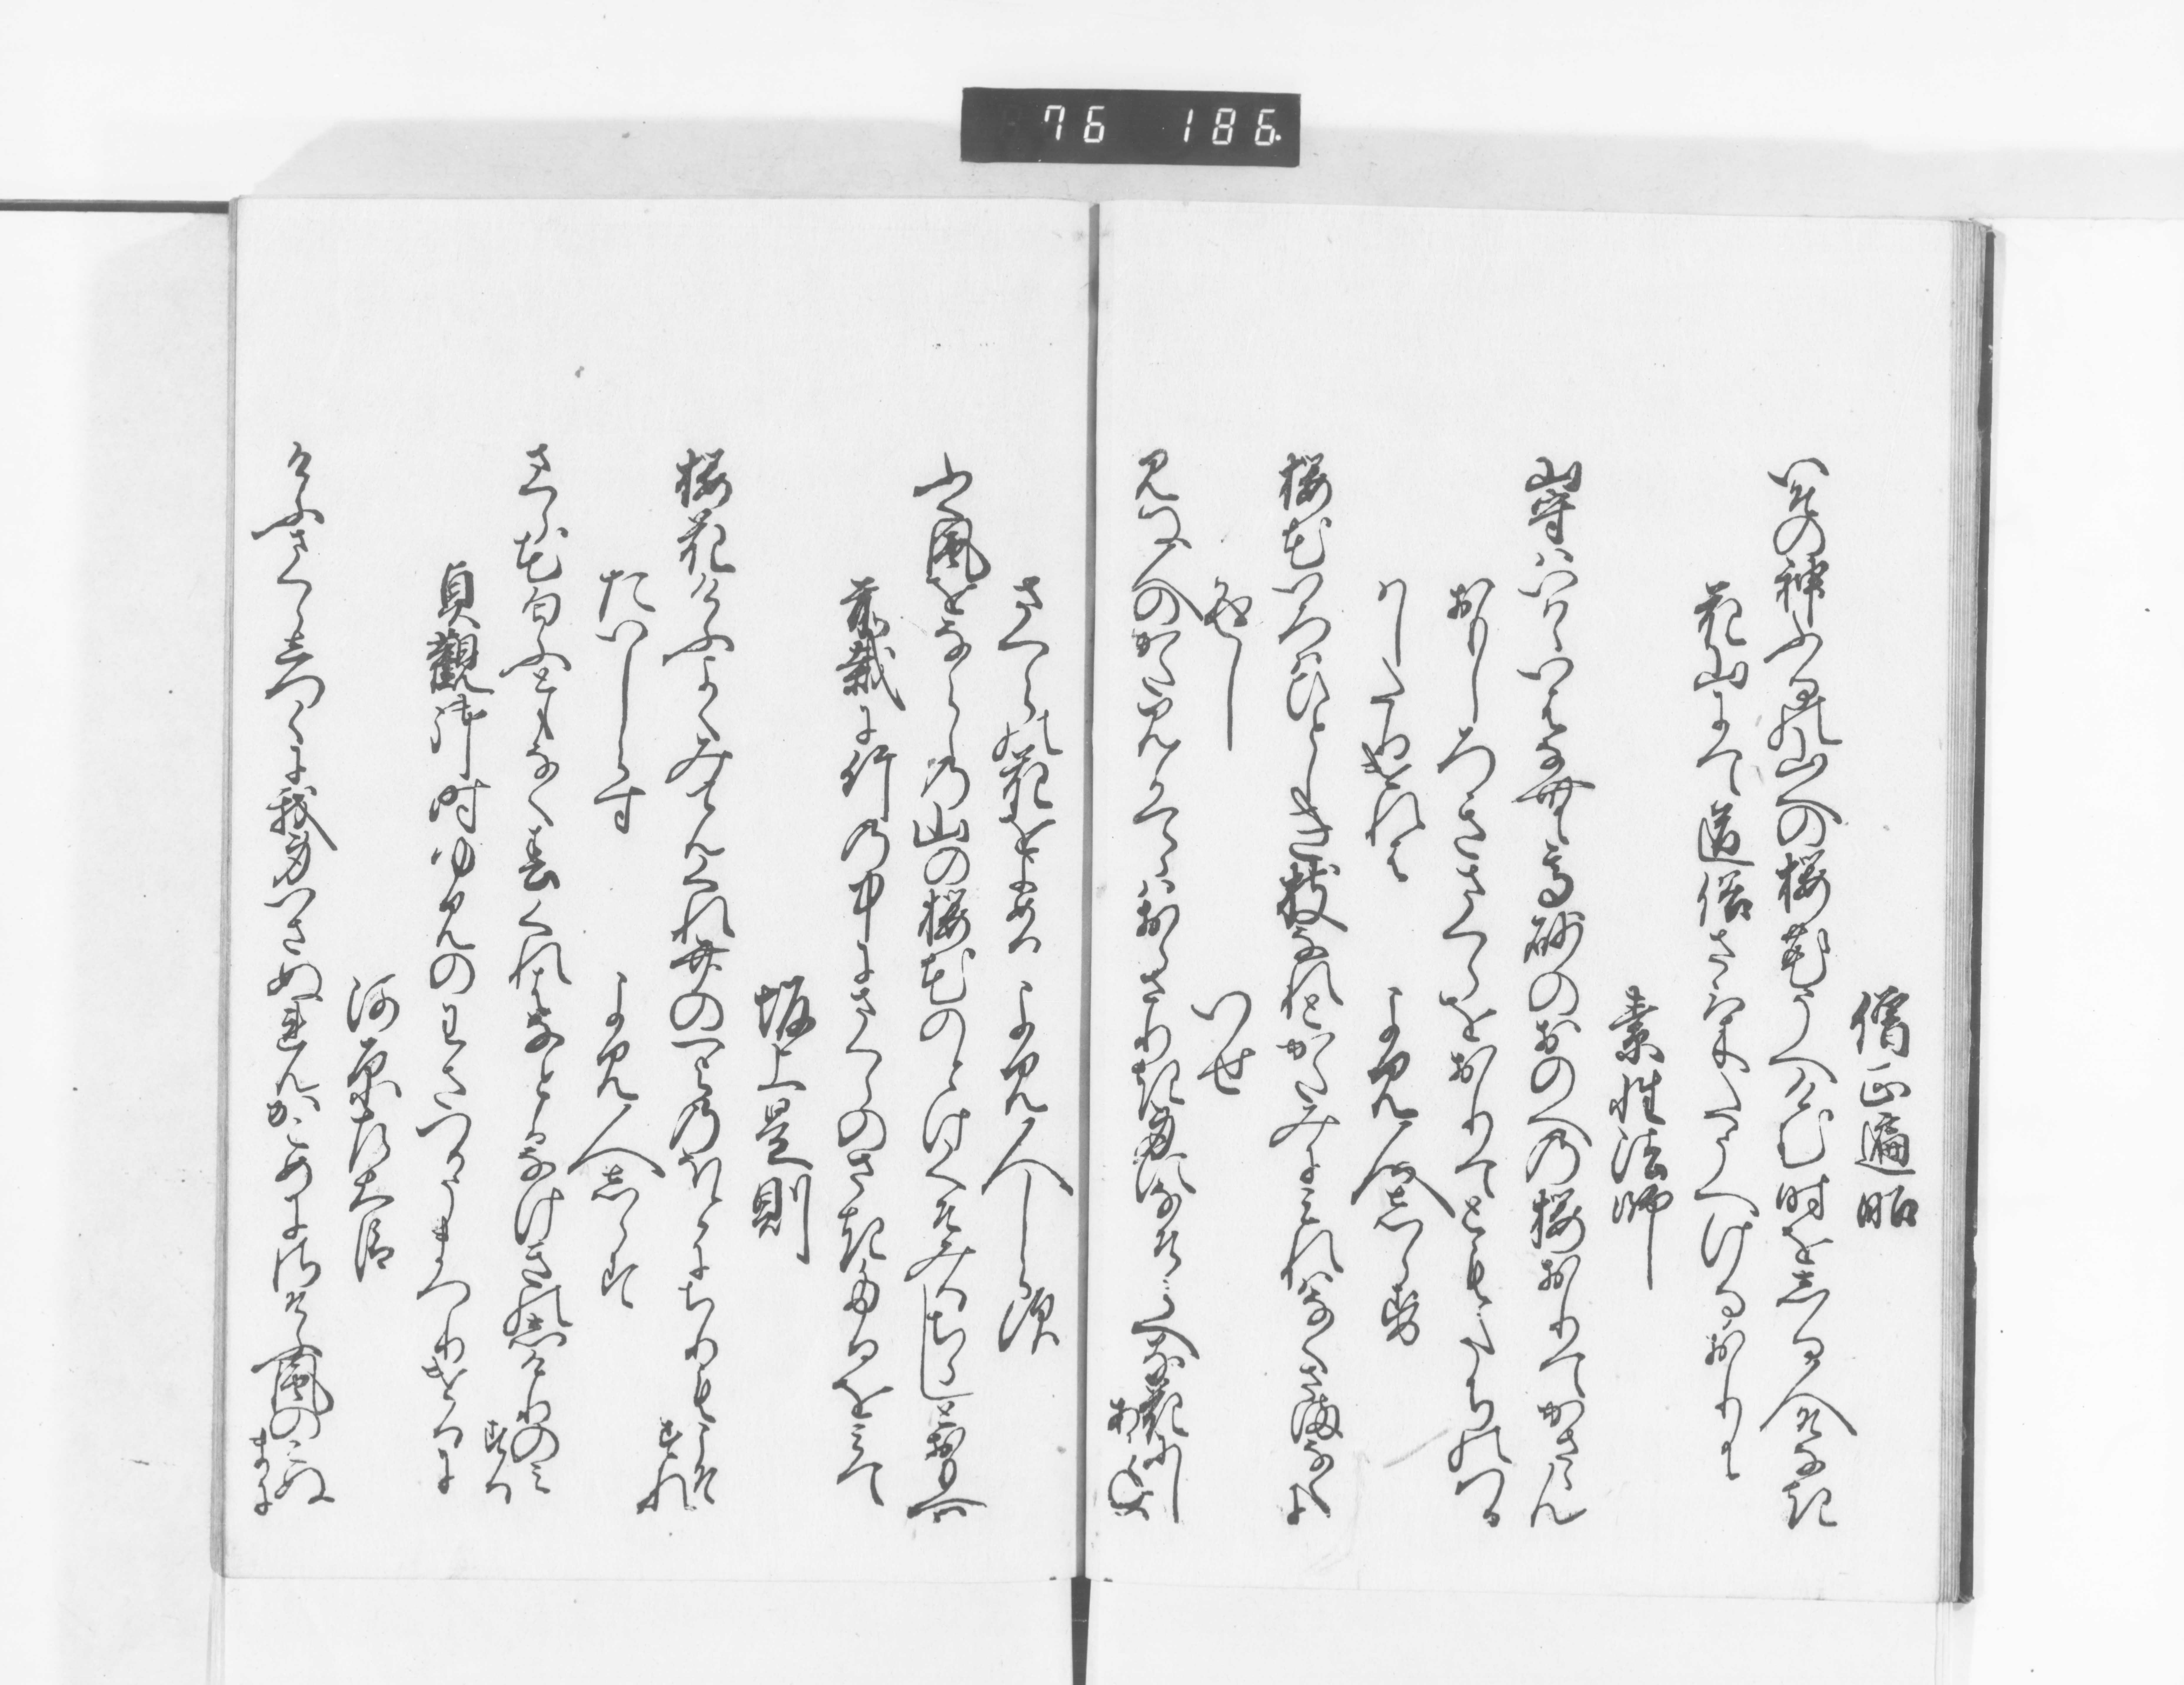 76 186
僧正遍昭
いその神ふるの山の桜花うへけむ時をしる人そなき
花山にて道俗さけたうへけるおりに
素性法師
山守はいはゝいはなむ高砂のおのへの桜おりてかさゝん
おもしろきさくらをおりてともたちの
よみ人しらす
桜花いろはひとしき枝なれとかたみにみれはなくさまなくに
返し
いせ
見ぬ人のかたみかてらはおらさりき
さくらの花をよめる よみ人しらす
ふく風をならしの山の桜花のとけくそみるちらしとおもへは
前栽に竹の中にさくらのさきたるをみて
坂上是則
桜花けふよくみてんくれ竹の一よのほとにちりもこそすれ
たいしらす よみ人しらす
さくら花匂ふともなく春くれはなとか歎のしけりのみする
貞観御時ゆみのわさつかうまつりけるに
河原左大臣
けふさくらしつくに我身いさぬれんかこめにさそふ風のこぬまに